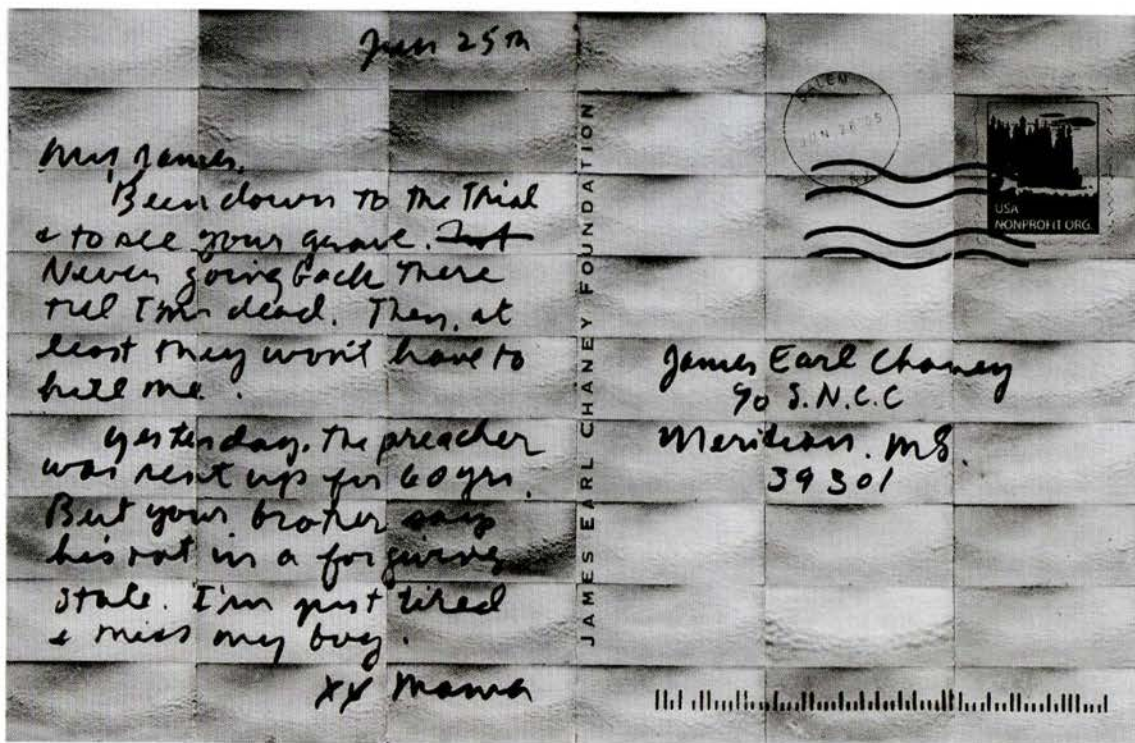 Jun 25th
My James,
Been down to the Trial
& to see your grave. Not
Never going back there
till I'm dead. Then, at
least they won't have to
kill me.
Yesterday, the preacher
was sent up for 60 yrs.
But your brother says
he's not in a forgiving
state. I'm just tired
& miss my boy.
XX Mama
JAMES EARL CHANEY FOUNDATION
JUN 26 '05
USA
NONPROFIT ORG.
James Earl Chaney
c/o S.N.C.C
Meridian, MS.
39301